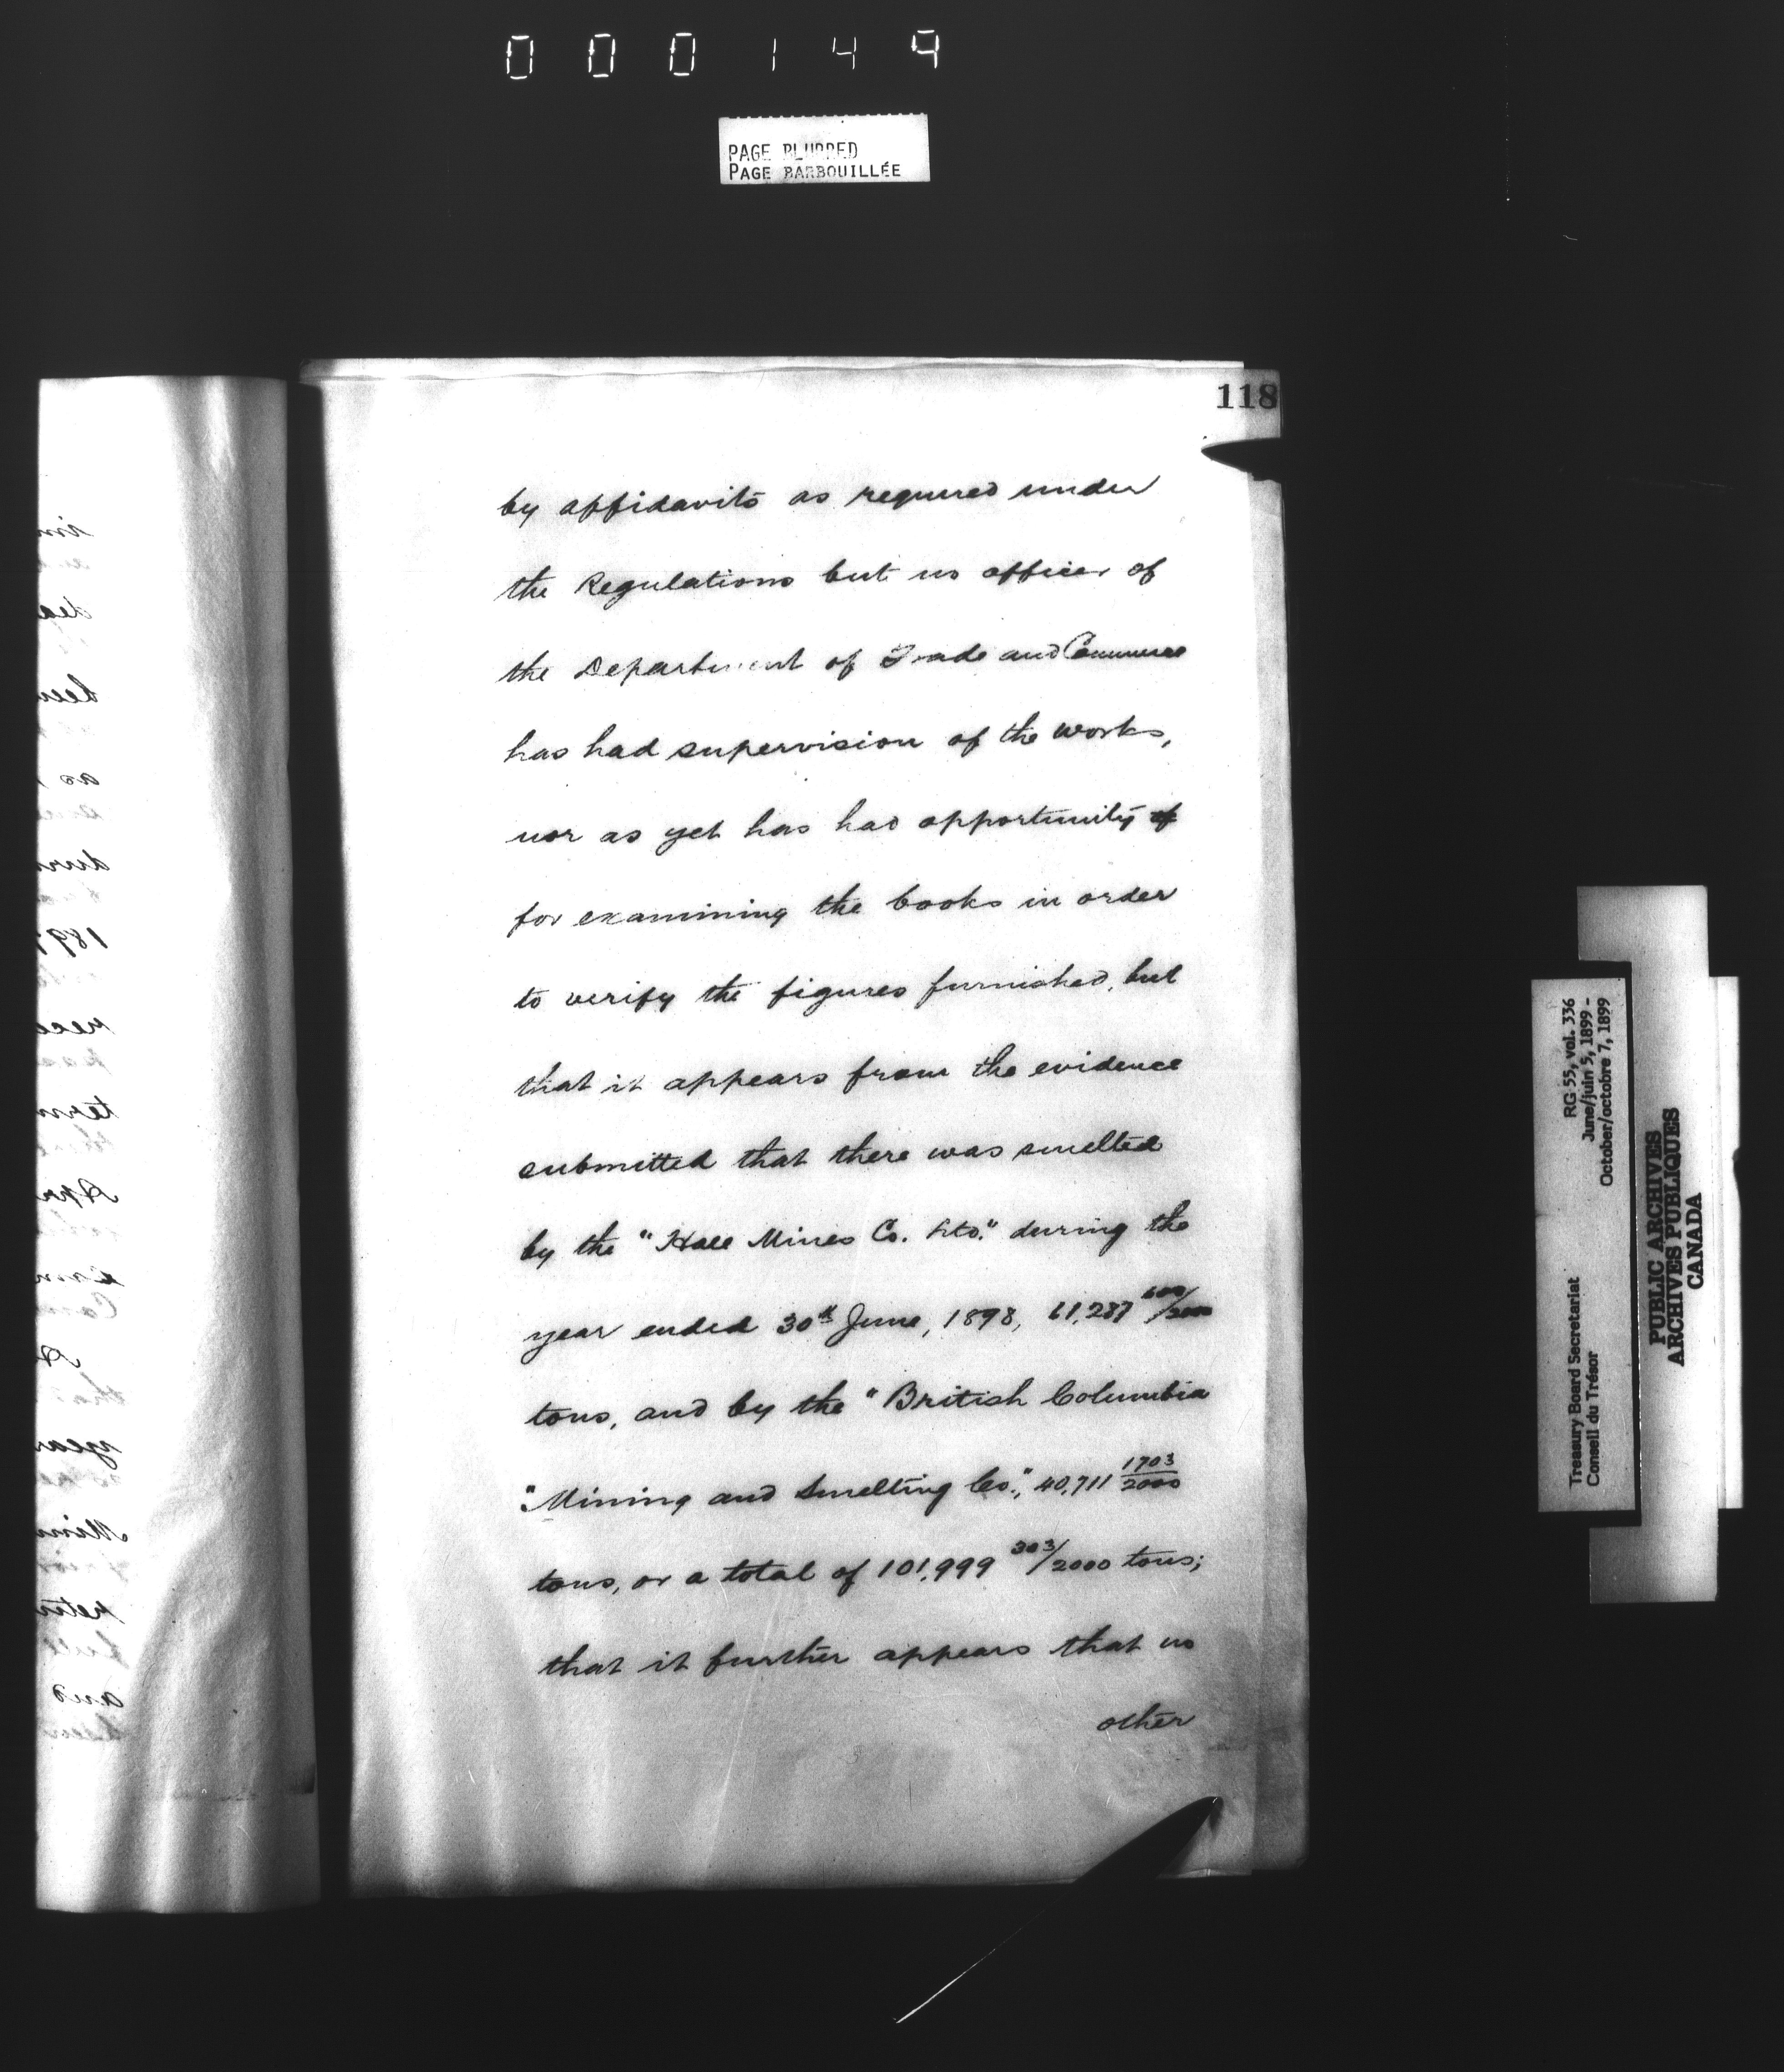 000149
PAGE BLURRED
PAGE BARBOUILLÉE
118
by affidavits as required under
the Regulations but no officer of
the Department of Trade and Commerce
has had supervision of the works,
nor as yet has had opportunity of
for examining the books in order
to verify the figures furnished, but
that it appears from the evidence
submitted that there was smelted
by the "Hall Mines Co. Ltd." during the
year ended 30th June, 1898, 61,287 600/2000
tons, and by the "British Columbia
"Mining and Smelting Co.", 40,711 1703/2000
tons, or a total of 101,999 303/2000 tons;
that it further appears that no
other
RG 55, vol. 336
June/juin 5, 1899 -
October/octobre 7, 1899
Treasury Board Secretariat
Conseil du Trésor
PUBLIC ARCHIVES
ARCHIVES PUBLIQUES
CANADA